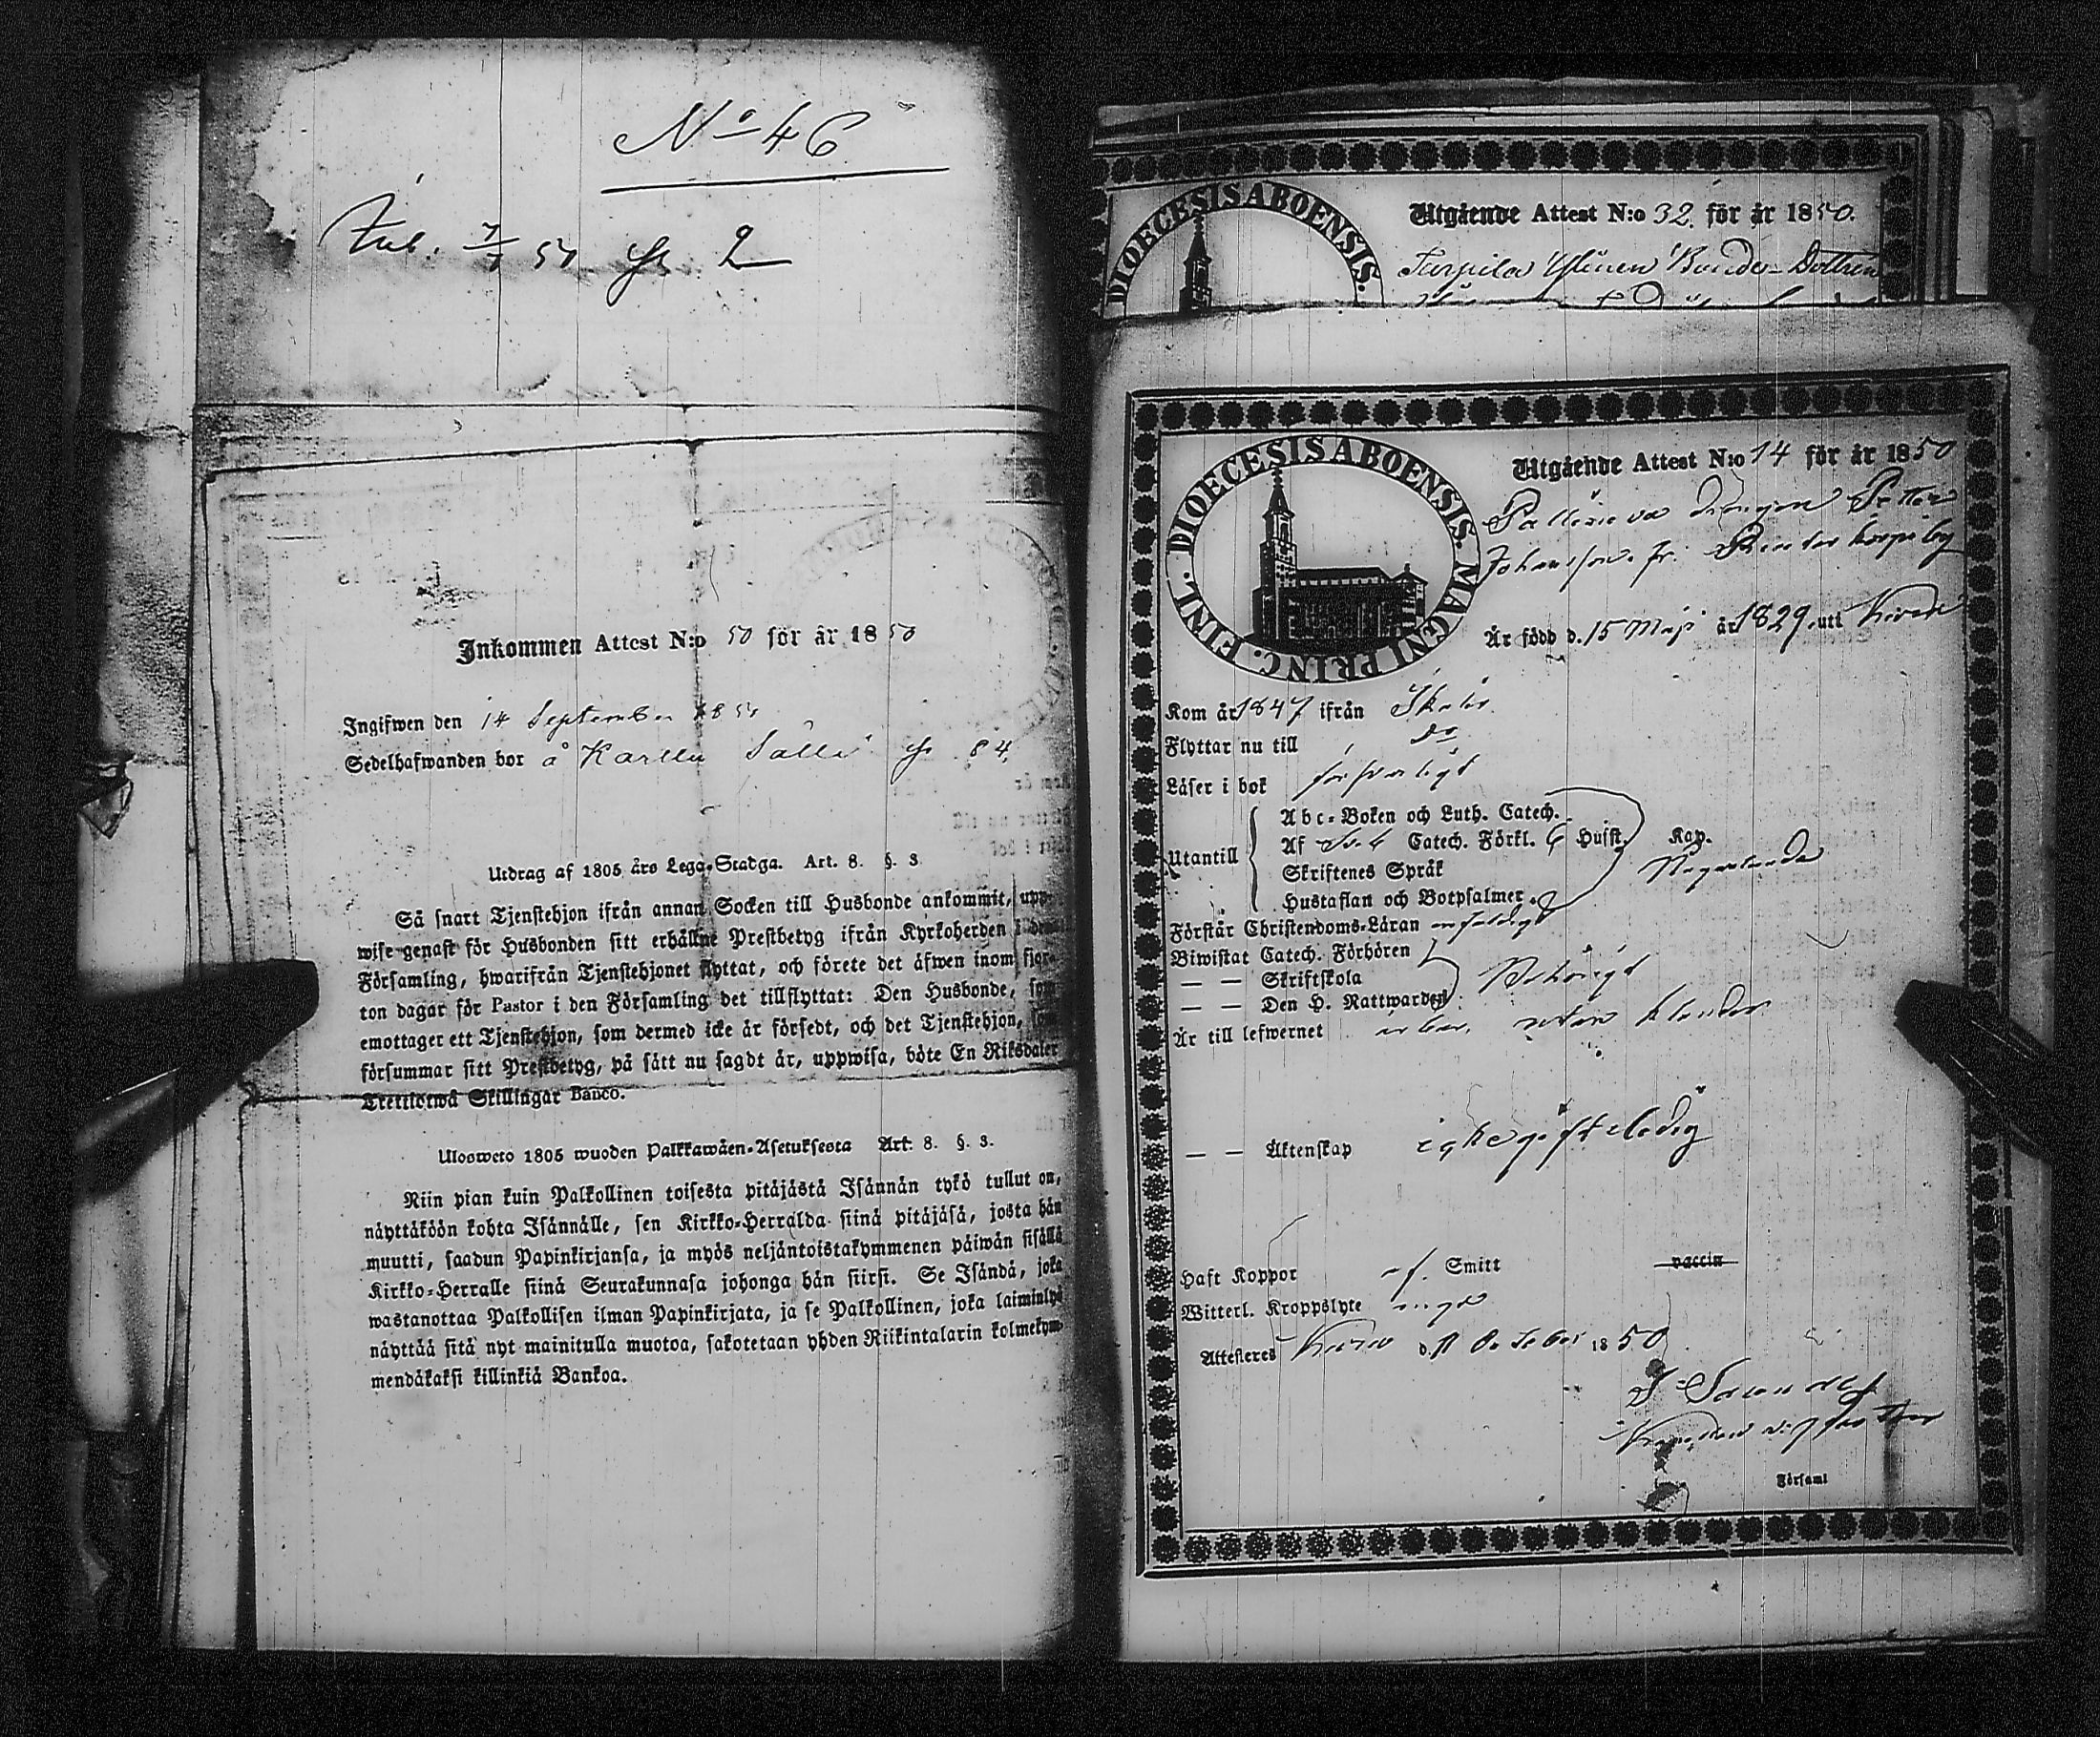 No 46
50 2
Inkommen Attest N:o 50 för år 1850
Ingifwen den 14 September 1850
Sedelhafwanden bor å Karllu Sälli 84.
Utdrag af 1805 års Lego-Stadga. Art. 8. §. 3.
Så snart Tjenstehjon ifrån annan Socken till Husbonde ankommit, upp-
wise genast för Husbonden sitt erhållne Prestbetyg ifrån Kyrkoherden i den
Församling, hwarifrån Tjenstehjonet flyttat, och förete det äfwen inom fjor-
ton dagar för Pastor i den Församling det tillflyttat: Den Husbonde, som
emottager ett Tjenstehjon, som dermed icke är försedt, och det Tjenstehjon, som
försummar sitt Prestbetyg, på sätt nu sagdt är, uppwisa, böte En Riksdaler
Trettiotwå Skillingar Banco.
Ulosweto 1805 wuoden Palkkawäen-Asetuksesta Art. 8. §. 3.
Niin pian kuin Palkollinen toisesta pitäjästä Isännän tykö tullut on,
näyttäköön kohta Isännälle, sen Kirkko-Herralda siinä pitäjäsä, josta hän
muutti, saadun Papinkirjansa, ja myös neljäntoistakymmenen päiwän sisällä
Kirkko-Herralle siinä Seurakunnasa johonga hän siirsi. Se Isändä, joka
wastanottaa Palkollisen ilman Papinkirjata, ja se Palkollinen, joka laiminlyö
näyttää sitä nyt mainitulla muotoa, sakotetaan yhden Riikintalarin kolmekym-
mendäkaksi killinkiä Bankoa.
DIOECESIS ABOENSIS.
Utgående Attest N:o 32. för år 1850.
Bonde-Dottren
DIOECESIS ABOENSIS. MAGNI PRINC. FINL.
Utgående Attest N:o 14 för år 1850
Drängen Petter
Johansson fr.
Är född d. 15 Maji år 1829 uti
Kom år 1847 ifrån Ikalis
Flyttar nu till do
Läser i bok försvarligt
Utantill
Abc-Boken och Luth. Catech.
Af Catech. Förkl. Husst. Kap.
Skriftenes Språk
Någorlunda
Hustaflan och Botpsalmer.
Förstår Christendoms-Läran enfaldigt
Biwistat Catech. Förhören
— — Skriftskola
— — Den H. Nattwarden
Behörigt
Är till lefwernet ärbar, utan klander
— — Äktenskap icke gift ledig
Haft Koppor Smitt vaccin
Witterl. Kroppslyte inget
Attesteres Kuru d. October 1850
Församl